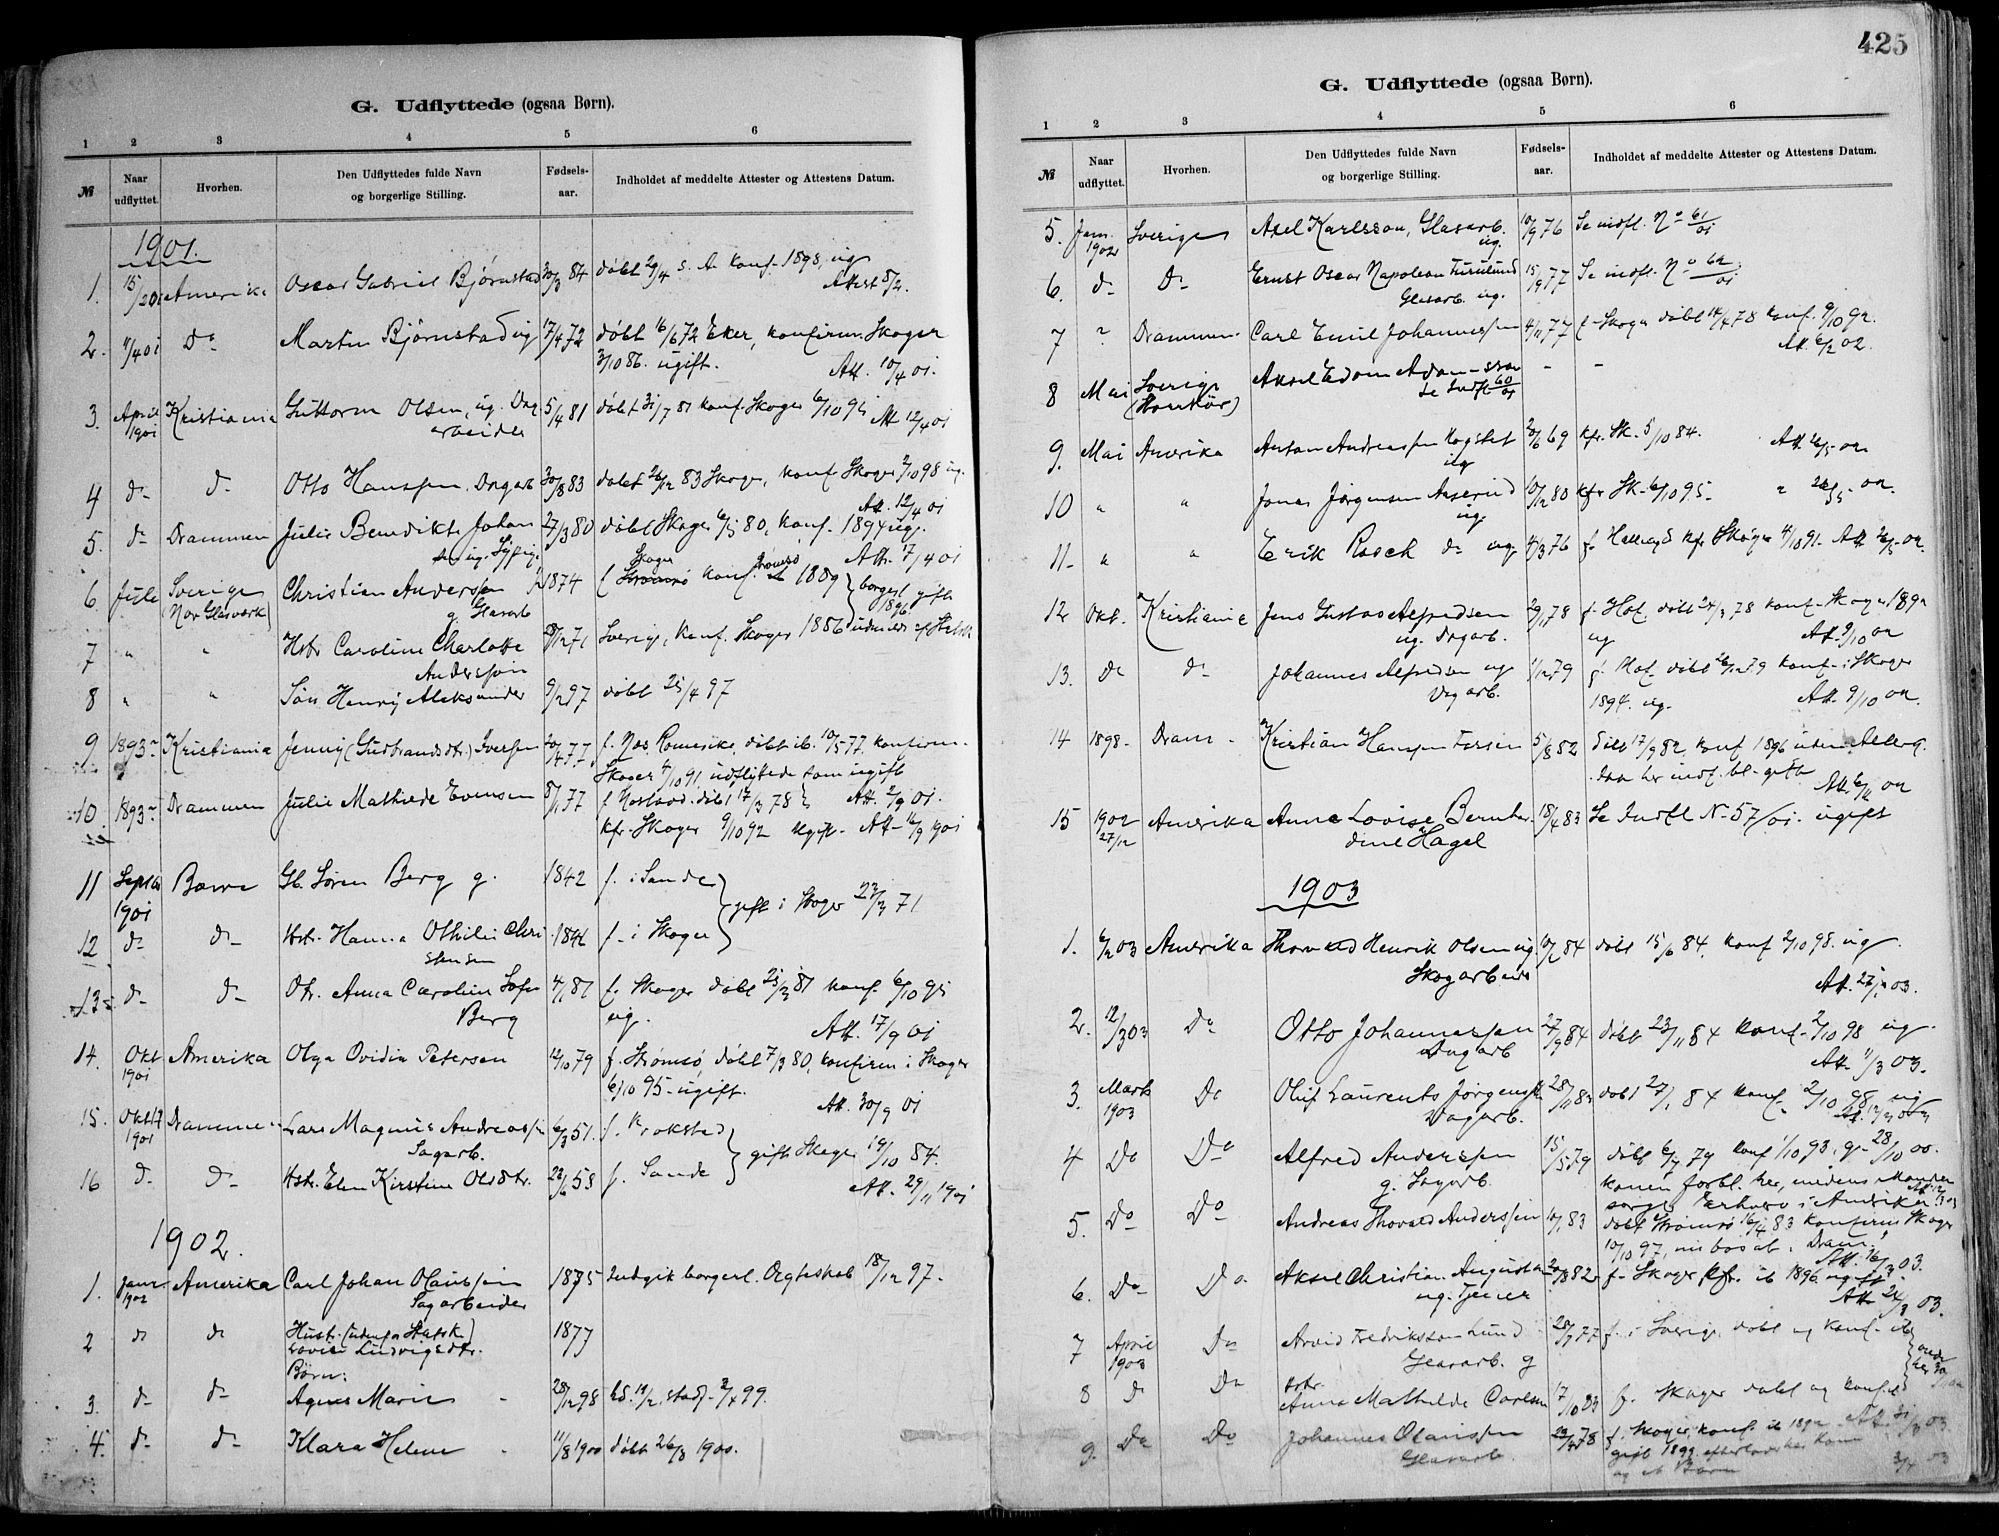 G. Udflyttede (ogsaa Børn).
1 2 3 4 5 6
№ Naar udflyttet. Hvorhen. Den Udflyttedes fulde Navn og borgerlige Stilling. Fødsels-aar. Indholdet af meddelte Attester og Attestens Datum.
1901.
1. 15/2 01 Amerika Oscar Gabriel Bjørnstad 30/3 84 døbt 29/4 s. A. konf. 1898, ug
Attest 8/2.
2. 11/4 01 Do Martin Bjørnstad ug 17/4 72 døbt 16/6 72 Eker, konfirm. Skoger
3/10 86. ugift. Att. 10/4 01.
3. April 1901 Kristiania Guttorm Olsen, ug. Dag 5/4 81 døbt 31/7 81 konf. Skoger 6/10 95 Att 12/4 01
arbeider
4 d- d- Otto Hanssen. Dagarb 30/8 83 døbt 26/12 83 Skoger, konf. Skoger 2/10 98 ug.
Att. 12/4 01
5. d- Drammen Julie Benedikte Johan 27/3 80 døbt Skoger 6/5 80, konf. 1894 ug.
sen ug. Sypig. Att. 17/4 01
6. Juli Sverige Christian Anderssen 1874 f Skoger konf. Strømsø 1889 borgerl gifte
(Nor Glasværk) g. Glasarb 1896
7 " " Hstr Caroline Charlotte 71 Sverige, konf. Skoger 1886 udmeldt af Statsk
Anderssen
8 " " Søn Henry Aleksander 9/2 97 døbt 25/4 97
9 1893 Kristiania Jenny (Gudbrandsdtr.) Iversen 20/4 77 f. Nes Romerike, døbt ib. 10/5 77, konfirm.
Skoger 4/10 91, udflyttede som ugift
10. 1893 Drammen Julie Mathilde Evensen 8/1 77 døbt 17/3 78 Att. 2/9 01.
kfr. Skoger 9/10 92 Ugift. Att. 16/9 1901
11 Septbr 1901 Gb. Søren Berg g. 1842 f. i Sande
gift i Skoger 23/3 71
12 d- d- Hstr. Hanna Othilie Chri 1844 f. i Skoger
stensen
13 d- d- Dtr. Anna Caroline Sofie 4/1 81 f. Skoger døbt 25/3 81 konf. 6/10 95
Berg ug. Att. 17/9 01
14. Okt 1901 Amerika Olga Ovidia Petersen 12/10 79 f. Strømsø, døbt 7/3 80, konfirm i Skoger
6/10 95 ugift. Att. 30/9 01
15. Oktbr 1901 Drammen Lars Magnus Andreassen 6/3 51. f. Krokstad
Sagarb. gift Skoger 19/10 84.
16 d- d- Hstr. Elen Kirstine Olsdtr. 22/6 58 f. Sande
Att. 29/11 1901
1902.
1. Janr 1902 Amerika Carl Johan Olaussen 1875 Indgik borgerl. Ægteskab 18/12 97.
Sagarbeider
2 d- d- Hust. (udenfor Statsk) 1877
Lovise Ludvigsdtr.
Børn:
3. d- d- Agnes Marie - 28/12 98
4. d- d- Klara Helene - 11/8 1900 døbt 26/8 1900.
425
G. Udflyttede (ogsaa Børn).
1 2 3 4 5 6
№ Naar udflyttet. Hvorhen. Den Udflyttedes fulde Navn og borgerlige Stilling. Fødsels-aar. Indholdet af meddelte Attester og Attestens Datum.
5. Jan. 1902 Sverige Axel Karlsson, Glasarb. 10/9 76 Se indfl. No 61/01
ug.
6. d- D- Ernst Oscar Napoleon Furulund 15/9 77 Se indfl. No 62/01
Glasarb. ug.
7 " Drammen Carl Emil Johannessen 4/11 77 f. Skoger døbt 14/4 78 konf. 9/10 92.
Att. 6/2 02.
8 Mai Sverige Aksel Edom - -
se Indfl 60/01
9. Mai Amerika Anton Andreassen Hogstet 20/6 69 kfr. Sk. 5/10 84. Att. 26/5 02
ug
10 " " Jonas Jørgensen Aaserud 10/12 80 kfr Sk. 6/10 95. " 26/5 02.
ug.
11. " " Erik Rosch do ug 4/3 76 kfr Skoger 4/10 91. Att 26/5 02.
12 Okt. Kristiania Jens Gustav Alfredsen 29/1 78 f. Hof. døbt 24/3 78 konf. Skoger 1892
ug. Dagarb. ug Att. 9/10 02
13. do d- Johannes Alfredsen ug 79 f. Hof. døbt 26/12 79 konf. i Skoger
Dagarb. 1894. ug. Att. 9/10 02.
14 1898 Dram - Kristian Hansen 5/8 82 døbt 17/9 82 konf 1896
daa her indf. bl. gifte Att. 6/11 02
15 1902 27/12 Amerika Anna Lovise Bernhar 18/4 83 Se Indfl N- 57/01. ugift
dine Hagel
1903
1. 6/2 03 Amerika Thorvald Henrik Olsen ug. 10/2 84 døbt 15/6 84. konf 2/10 98. ug.
Skogarbeider Att. 03.
2. 12/3 03 Do Otto Johannessen 27/9 84 døbt 23/11 84 konf. 2/10 98 ug.
Dagarb Att. 11/3 03.
3. Marts 1903 Do Oluf Laurents Jørgensen 28/11 83 døbt 27/1 84 konf. 2/10 98 ug
Dagarb.
4 Do Do Alfred Anderssen 15/5 79 døbt 6/7 79 konf 1/10 93, g. 28/10 00.
g. Sagarb. konen forbl. her, medens Manden
søger Erhverv i Amerika
5. Do Do Andreas Thorvald Anderssen 10/1 83 døbt Strømsø 16/4 83 konfirm Skoger
10/10 97, nu bosat i Dram. Att. 16/3 03.
6. Do Do Aksel Christian Augustsen 20/8 82 f. Skoger kfr. ib 1896 ugift
ug. Tjener Att 24/3 03.
7 April 1903 Do Arvid Fredriksson Lund 77 f. i Sverige, døbt og konf. ib
Glasarb. g
8 D Do Hstr.
Anna Mathilde Carlsen 17/10 83 f. Skoger døbt og konf. ib
9. Do Do Johannes Olaussen 78 f. Skoger, konf. ib 1892 Att. 31/3 03
Glasarb. gift 1899. efterlader her Kone
og et Barn